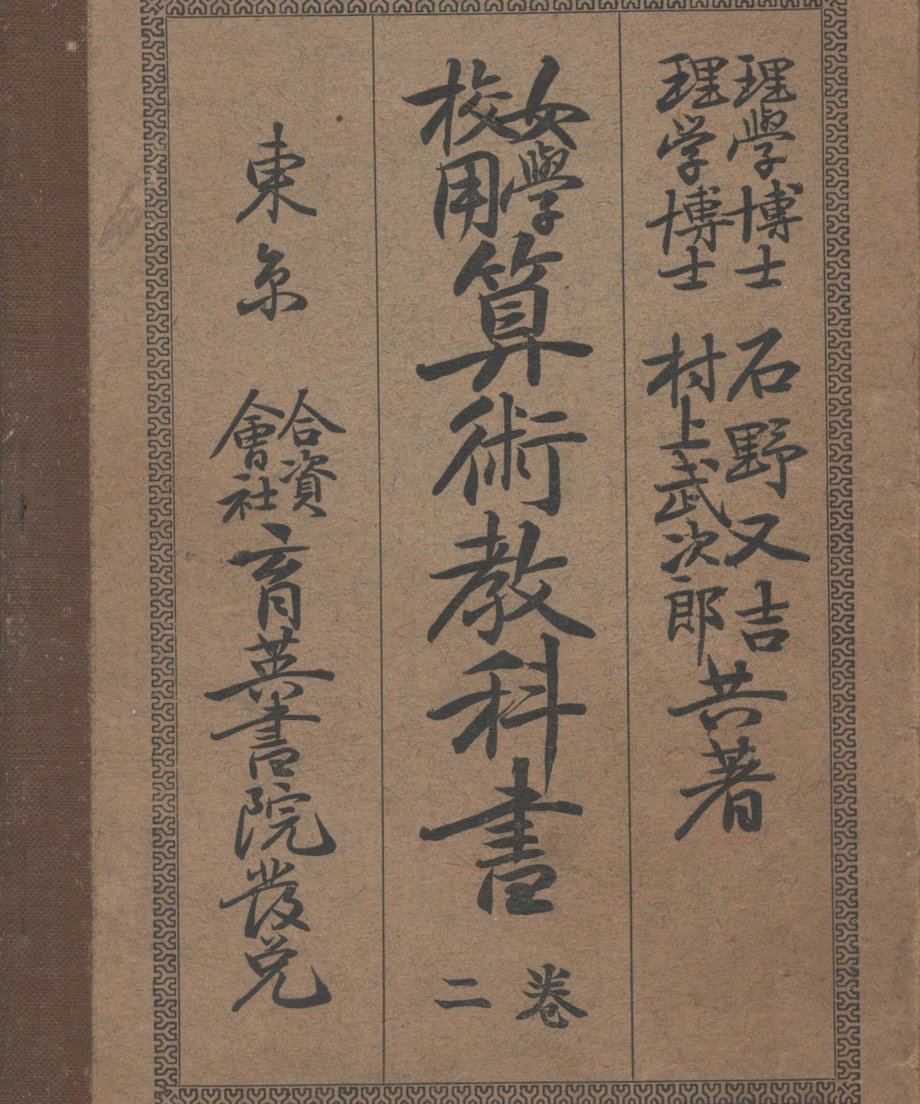 理學博士 石野又吉
理学博士 村上武次郎
共著
女學
校用
算術教科書
卷二
東京
合資
會社
育英書院發兌